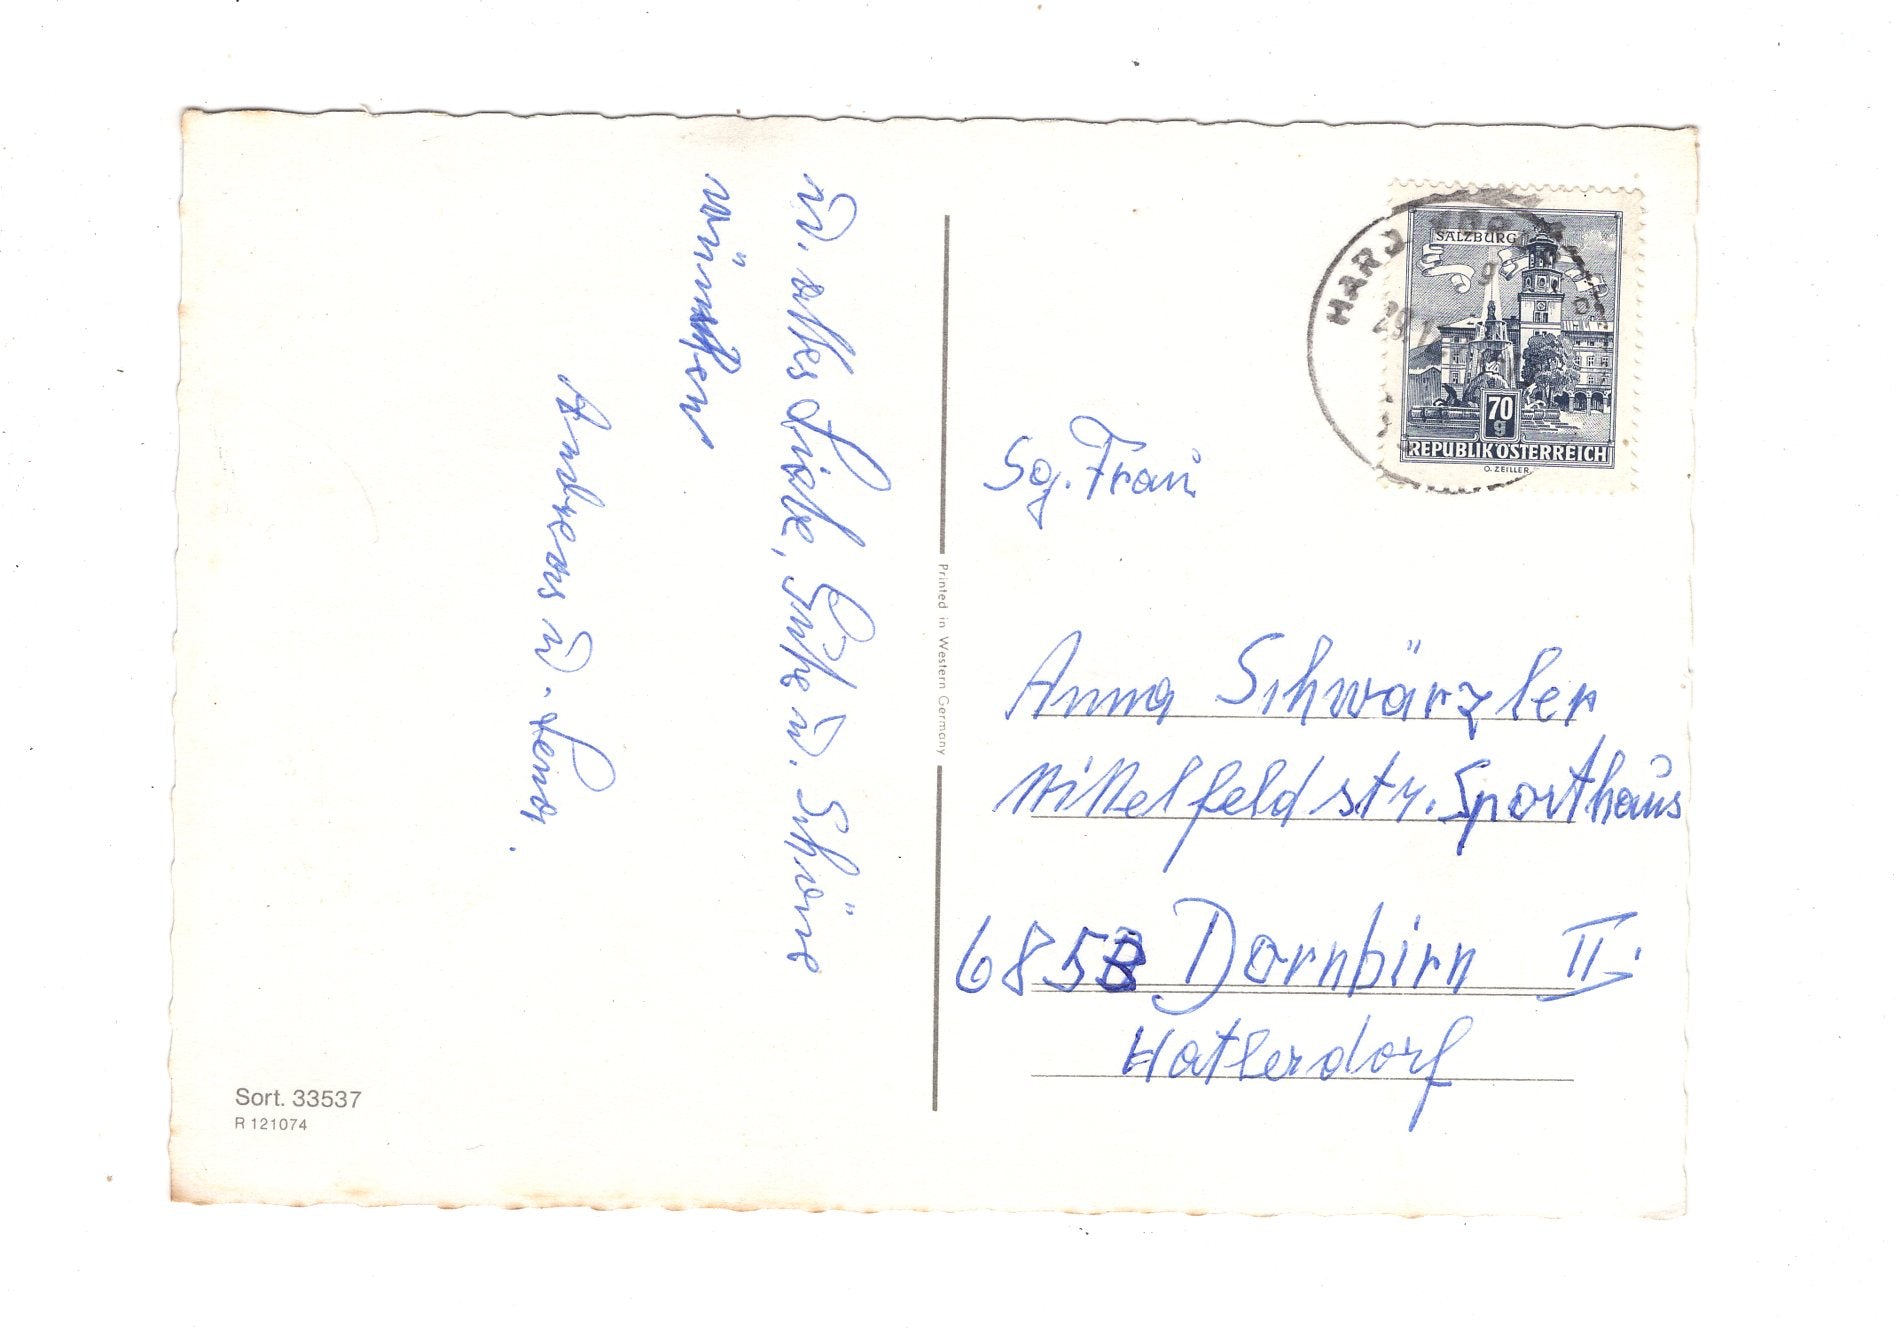 u. alles Liebe, Gute u. Schöne
wünschen
Andreas u.
Sort. 33537
R 121074
Printed in Western Germany
HARD
29.
SALZBURG
70
g
REPUBLIK ÖSTERREICH
O. ZEILLER.
Sg. Frau
Anna Schwärzler
Mittelfeldstr. Sporthaus
685 Dornbirn II.
Hatlerdorf